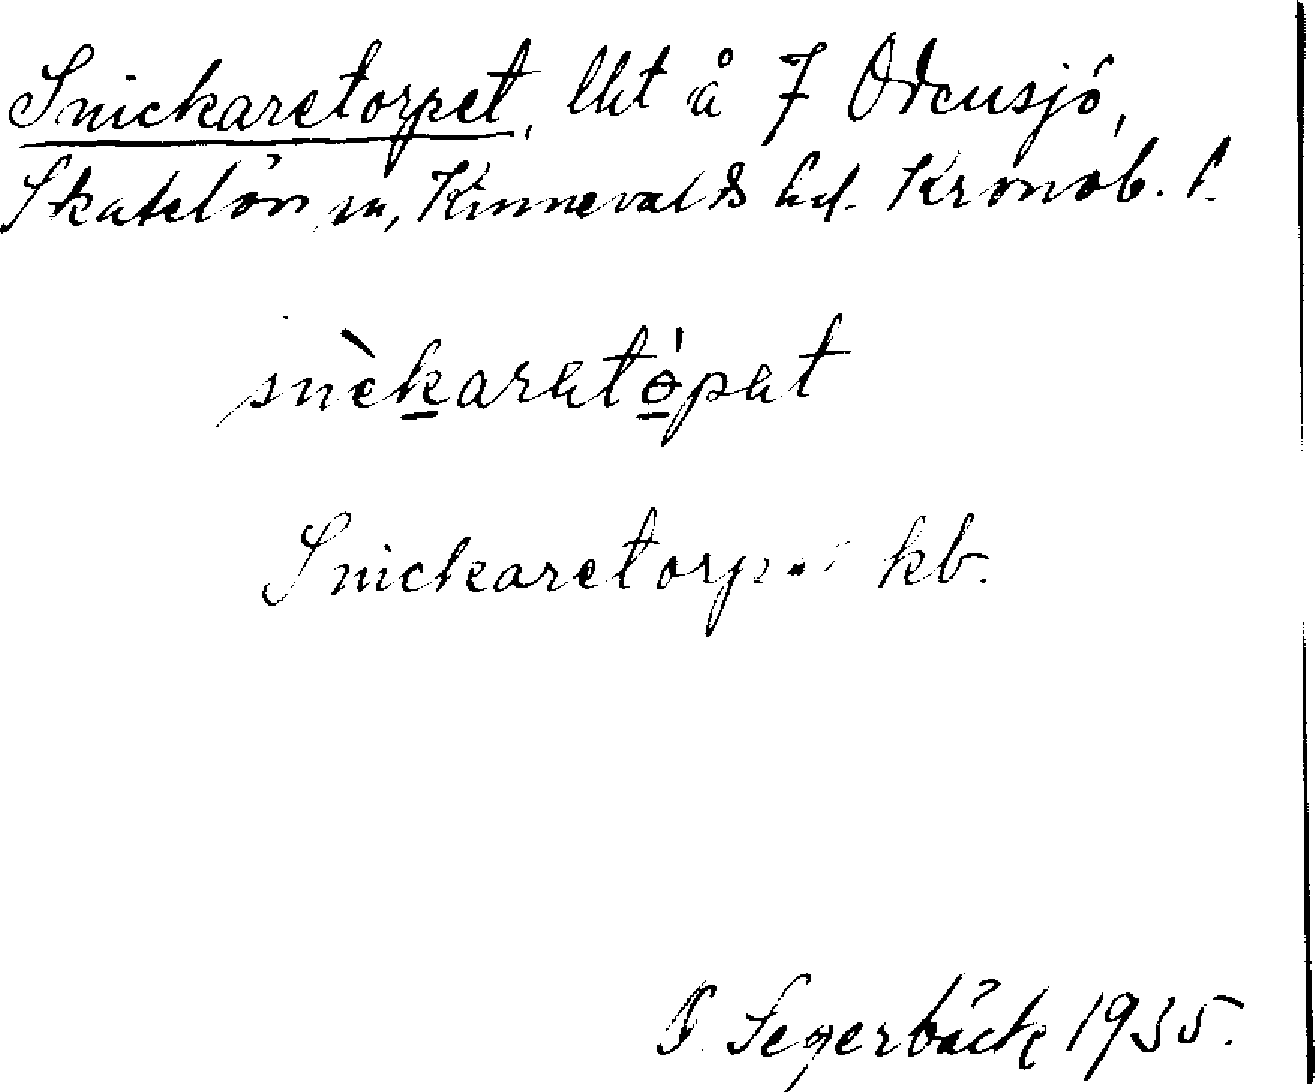 Snickaretorpet, lht å 7 Odensjö,
Skatelövs sn, Kinnevalds hd. Kronob. l.
snèkaratópat
Snickaretorpet kb.
Segerbäck 1935.